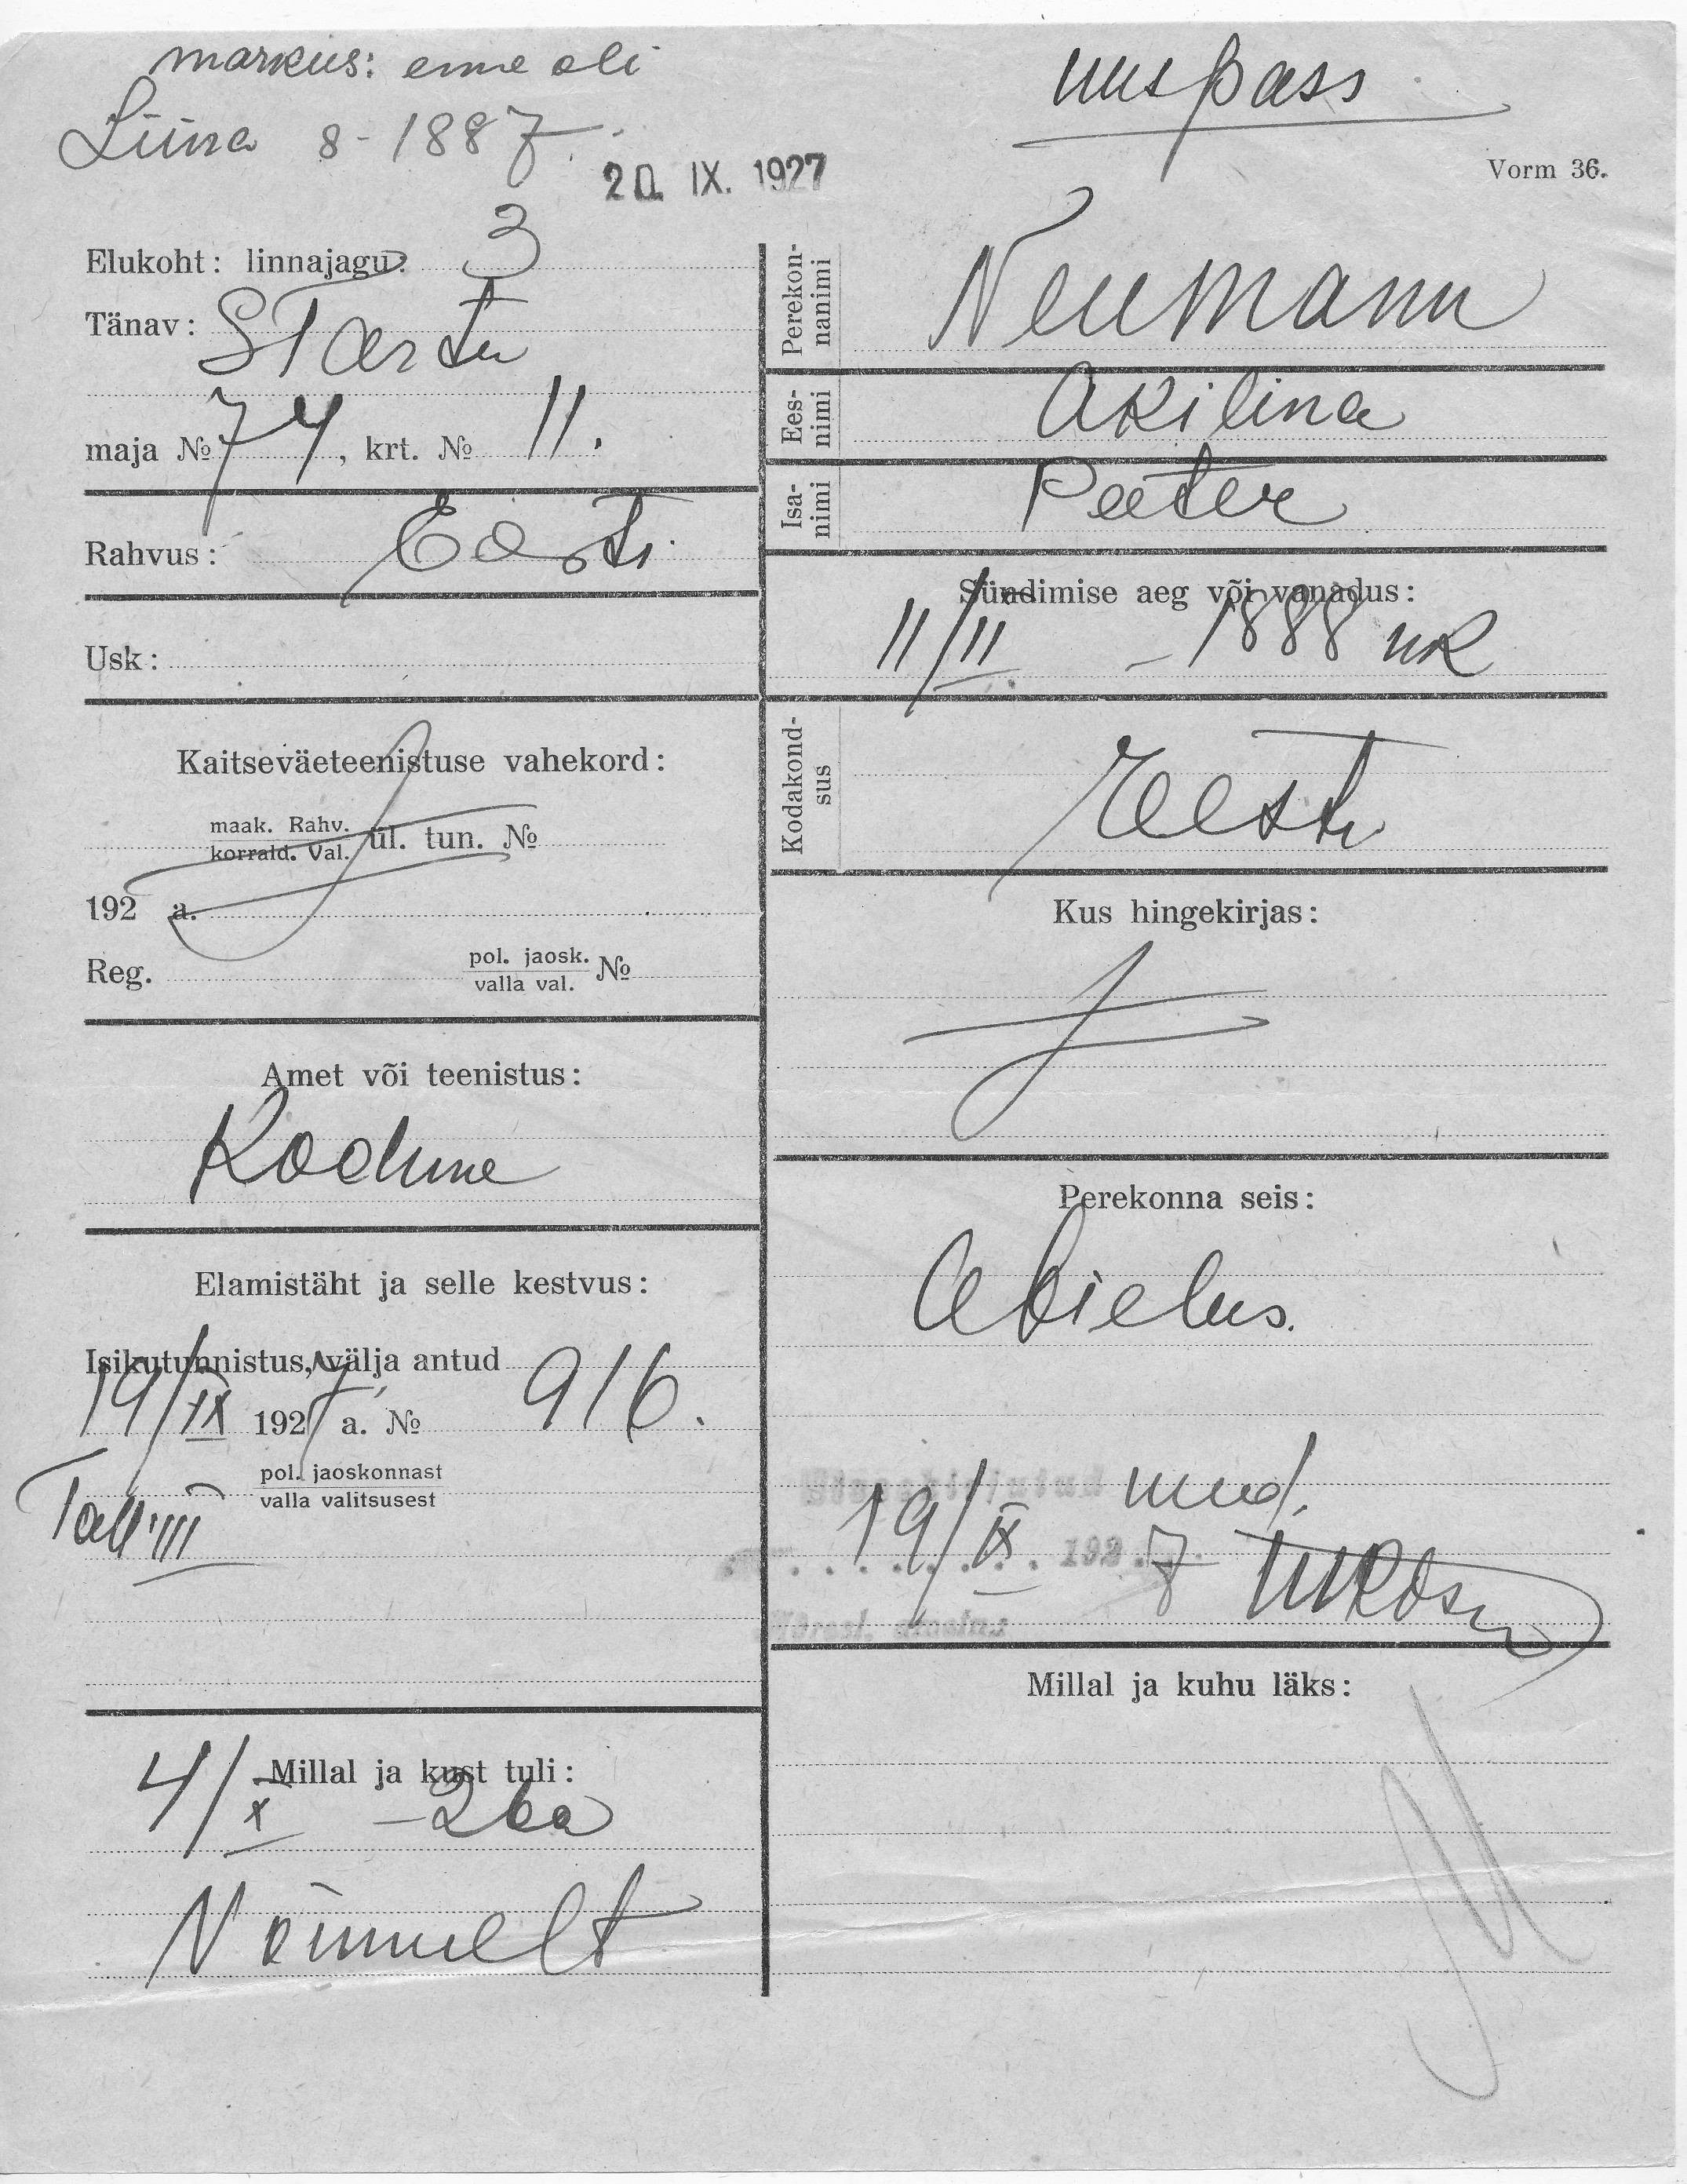 markus: enne oli
Liina 8-1887.
uus pass
20. IX. 1927
Vorm 36.
Elukoht: linnajagu: 3
Tänav: S Tartu
maja № 74, krt. № 11.
Rahvus: Eesti
Usk:
Kaitseväeteenistuse vahekord:
maak. Rahv.
korrald. Val. ül. tun. №
192 a.
Reg. pol. jaosk.
valla val. №
Amet või teenistus:
Kodune
Elamistäht ja selle kestvus:
Isikutunnistus, välja antud
19/IX 1927 a. № 916.
Tall. III pol. jaoskonnast
valla valitsusest
Millal ja kust tuli:
4/X - 26 a
Nõmmelt
Perekon-
nanimi
Neumann
Ees-
nimi
Akilina
Isa-
nimi
Peeter
Sündimise aeg või vanadus:
11/II - 1888 uk
Kodakond-
sus
Eesti
Kus hingekirjas:
Perekonna seis:
Abielus.
muud.
19/IX 1927
Millal ja kuhu läks: